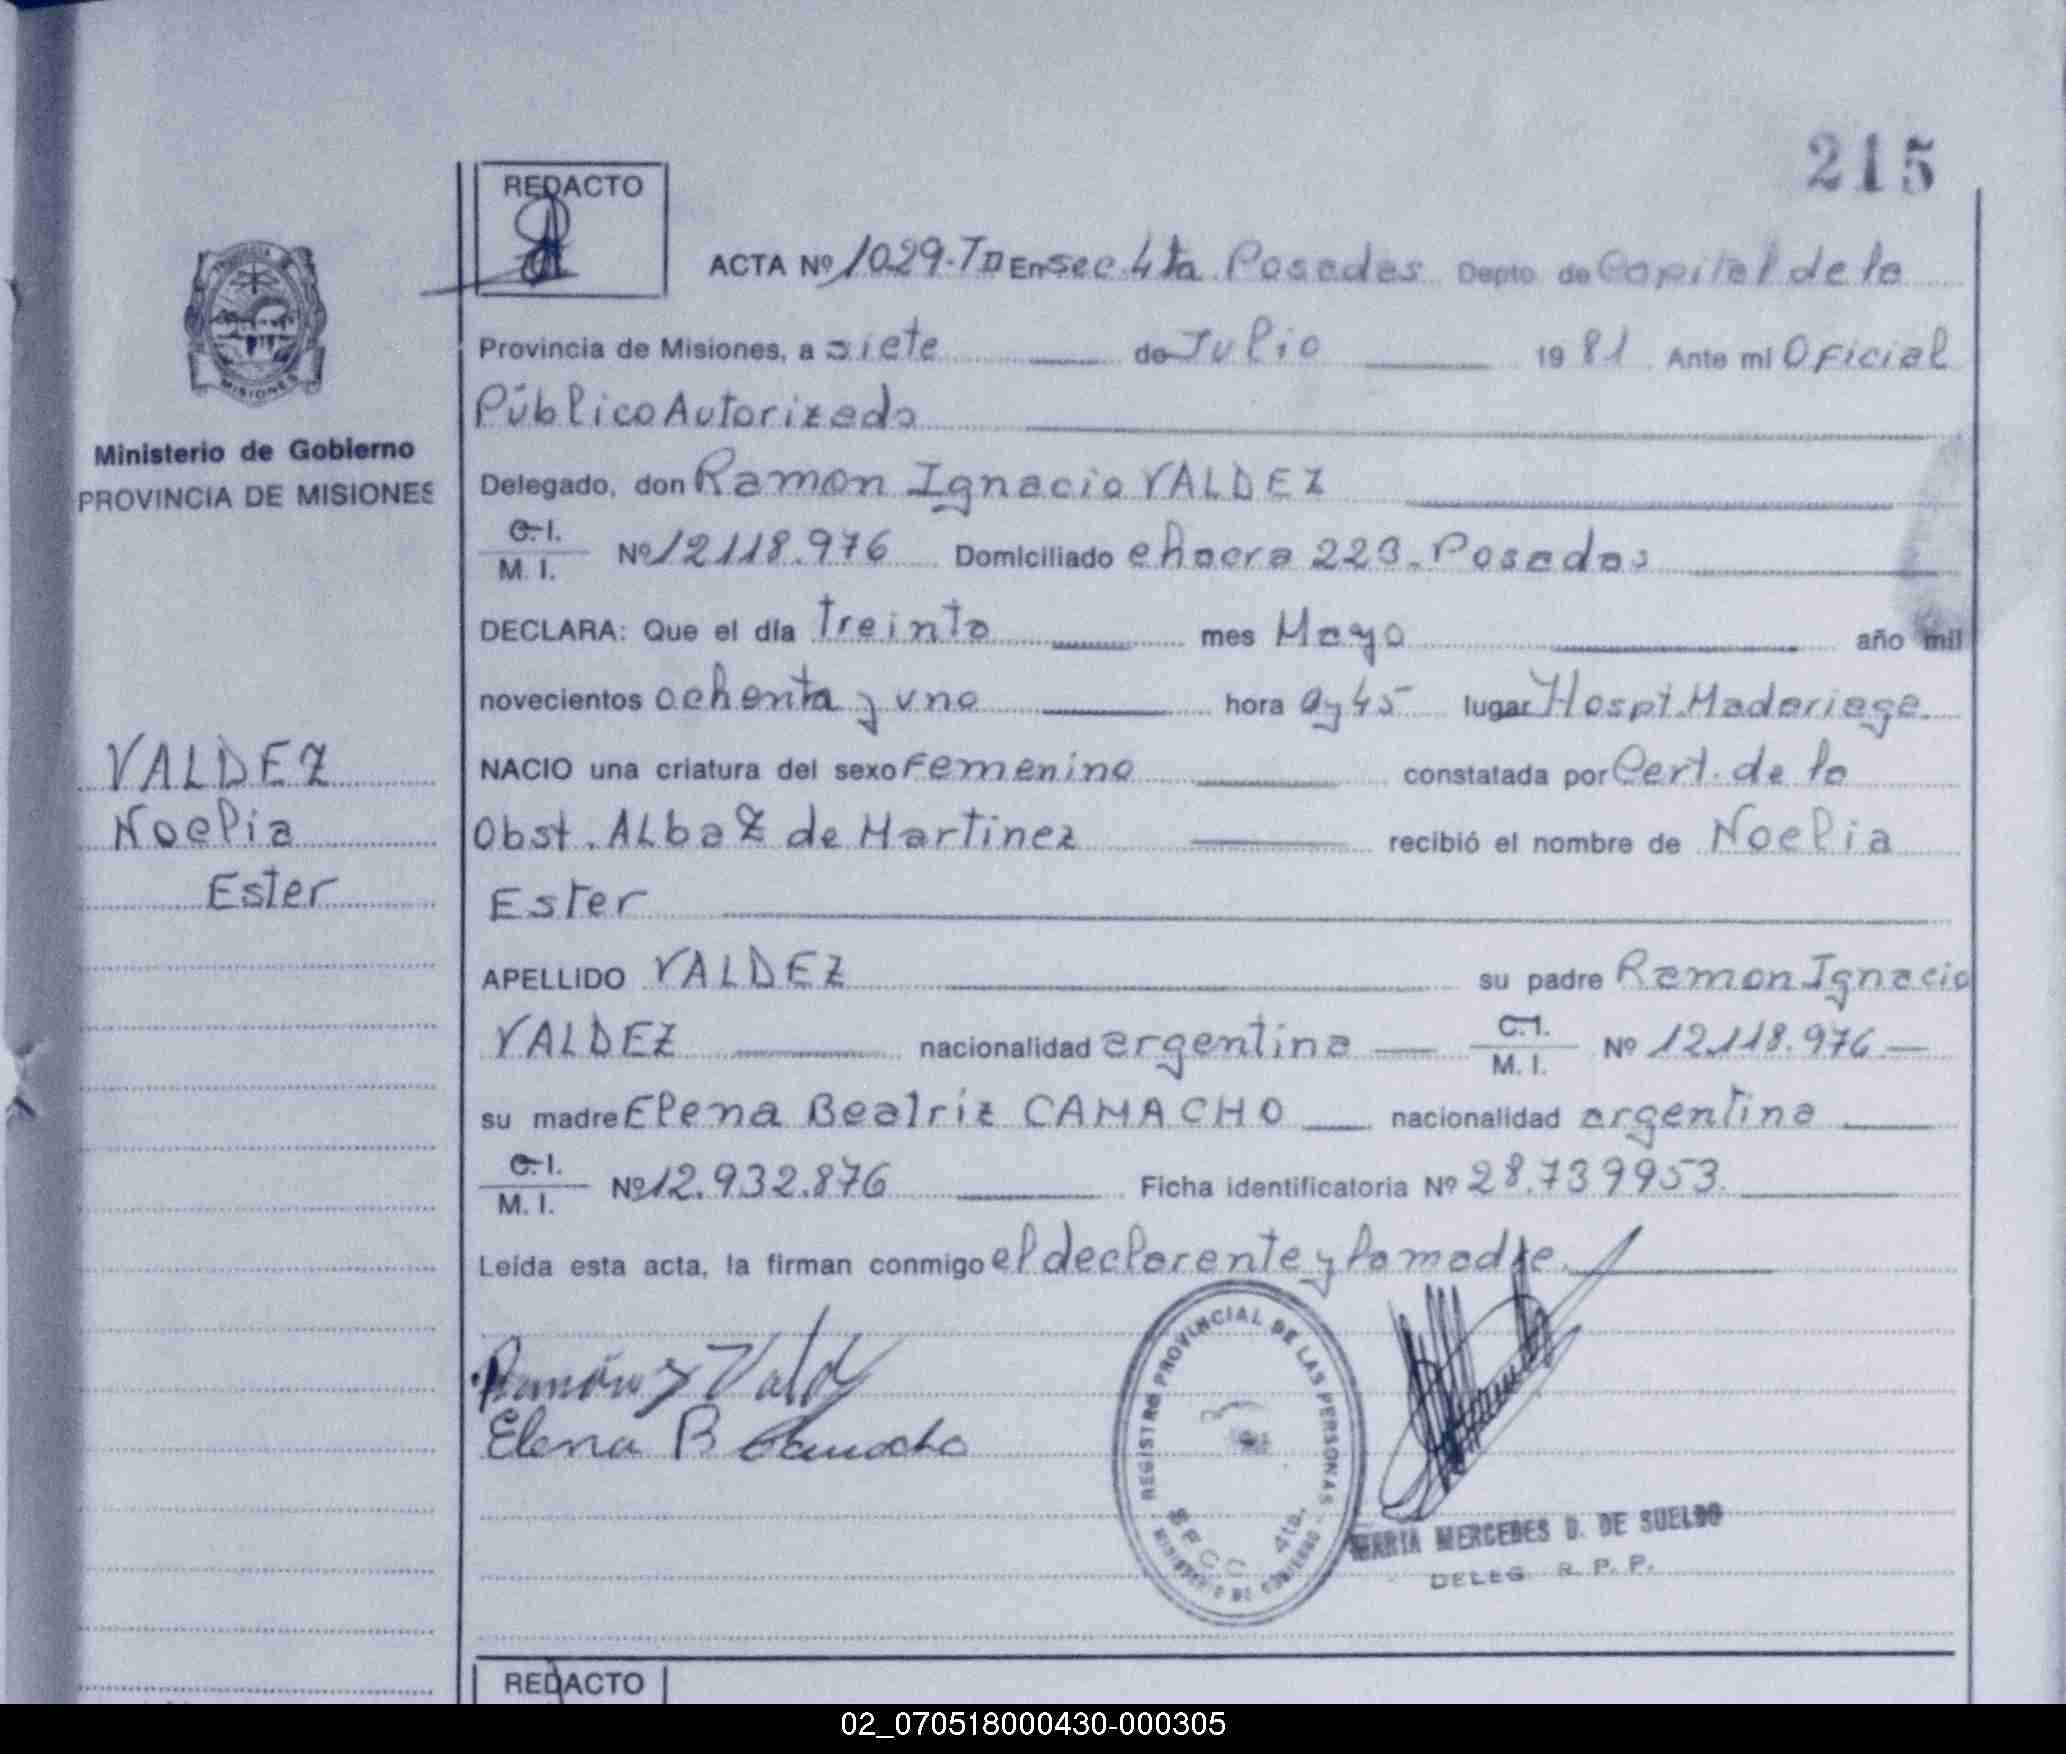 215
REDACTO
ACTA Nº 1029-TD En sec. 4ta. Posadas Depto de Capital de la
PROVINCIA DE
MISIONES
Provincia de Misiones, a siete de Julio 19 81 Ante mi Oficial
Público Autorizado
Ministerio de Gobierno
PROVINCIA DE MISIONES
Delegado, don Ramon Ignacio VALDEZ
C.I.
M.I. Nº 12118.976 Domiciliado chacra 223. Posadas
DECLARA: Que el día treinta mes Mayo año mil
novecientos ochenta y uno hora 9y45 lugar Hospt. Madariaga.
VALDEZ
Noelia
Ester
NACIO una criatura del sexo femenino constatada por Cert. de la
Obst. ALba Z de Martinez recibió el nombre de Noelia
Ester
APELLIDO VALDEZ su padre Ramon Ignacio
VALDEZ nacionalidad argentina C.I. M.I. Nº 12.118.976
su madre Elena Beatriz CAMACHO nacionalidad argentina
C.I.
M.I. Nº 12.932.876 Ficha identificatoria Nº 28.739953.
Leída esta acta, la firman conmigo el declarante y la madre.
Elena B Camacho
REGISTRO PROVINCIAL DE LAS PERSONAS
SECC 4ta.
MINISTERIO DE GOBIERNO
MARIA MERCEDES D. DE SUELDO
DELEG R. P. P.
REDACTO
02_070518000430-000305